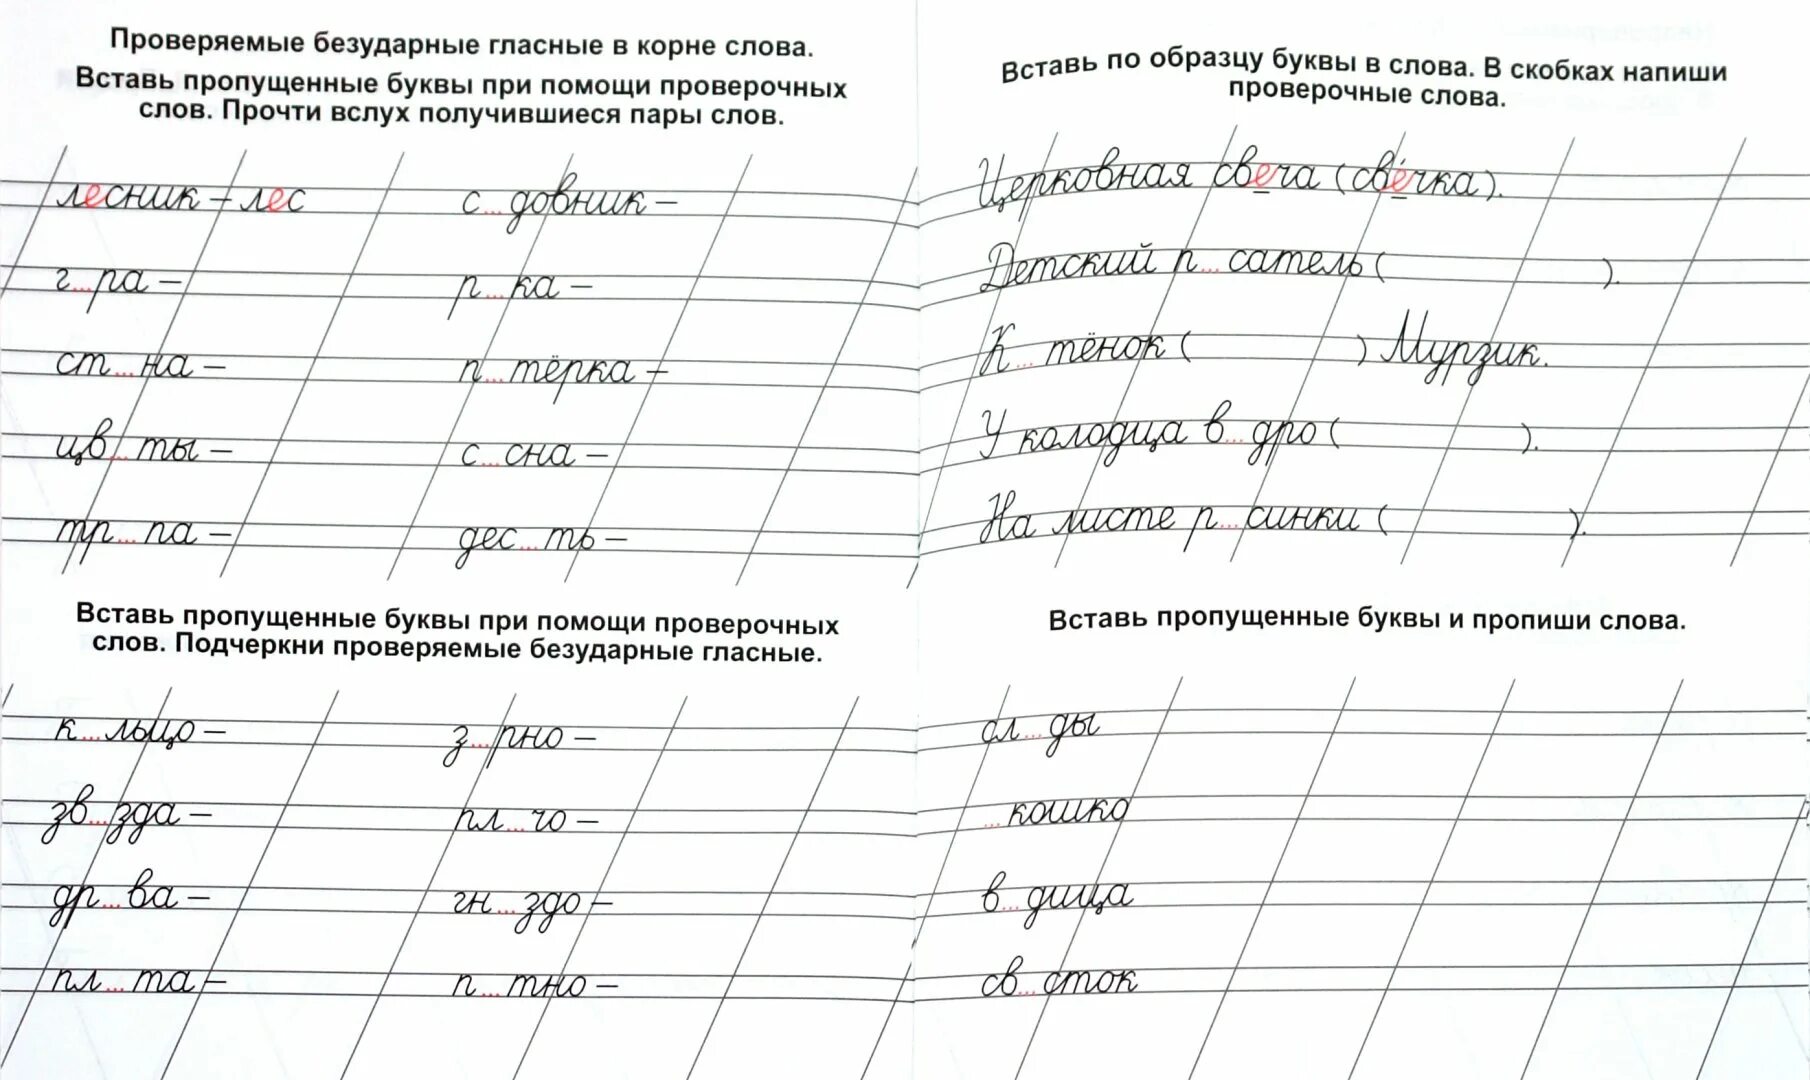 Проверяемые безударные гласные в корне слова.
Вставь пропущенные буквы при помощи проверочных
слов. Прочти вслух получившиеся пары слов.
лесник – лес с...довник –
г...ра – р...ка –
ст...на – п...тёрка –
цв...ты – с...сна –
тр...па – дес...ть –
Вставь пропущенные буквы при помощи проверочных
слов. Подчеркни проверяемые безударные гласные.
к...льцо – з...рно –
зв...зда – пл...чо –
др...ва – гн...здо –
пл...та – п...тно –
Вставь по образцу буквы в слова. В скобках напиши
проверочные слова.
Церковная свеча (све́чка).
Детский п...сатель ( ).
К...тёнок ( ) Мурзик.
У колодца в...дро ( ).
На листе р...синки ( ).
Вставь пропущенные буквы и пропиши слова.
сл...ды
...кошко
в...дица
св...сток